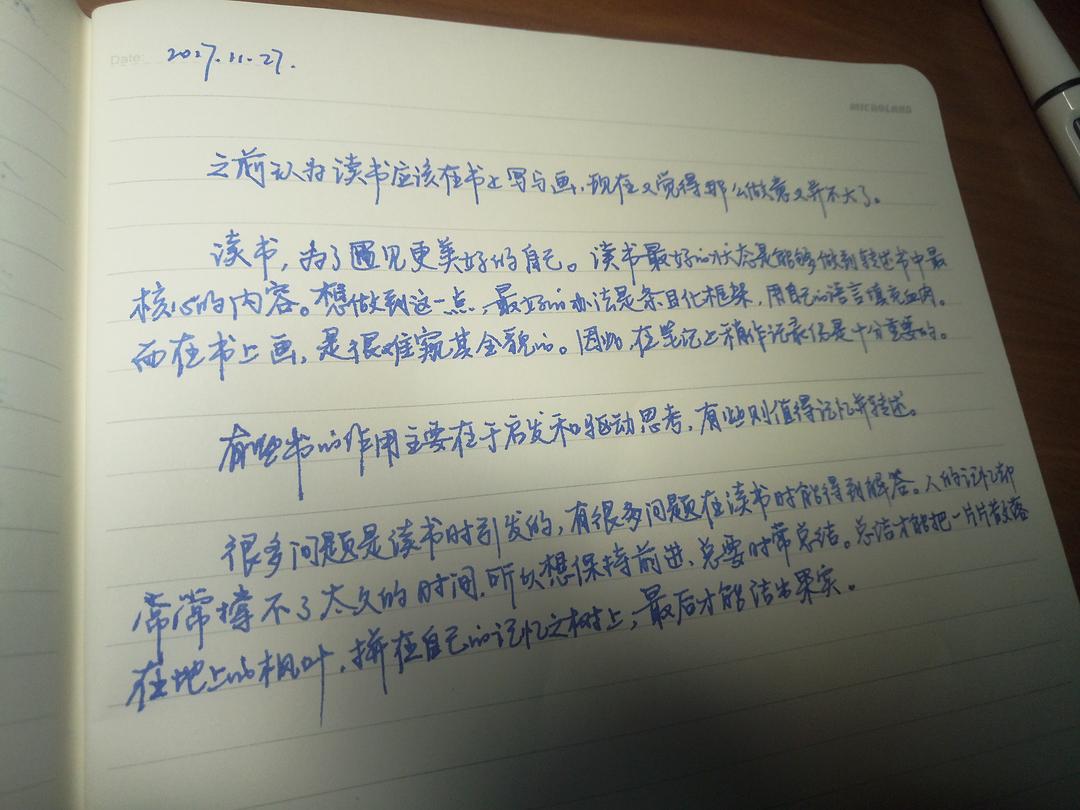 Date: 2017.11.27.
MICROLAND
之前认为读书应该在书上写与画,现在又觉得那么做意义并不大了。
读书,为了遇见更美好的自己。读书最好的状态是能够做到转述书中最
核心的内容。想做到这一点,最好的办法是条目化框架,用自己的语言填充血肉。
而在书上画,是很难窥其全貌的。因此,在笔记上稍作记录仍是十分重要的。
有些书的作用主要在于启发和驱动思考,有些则值得记忆并转述。
很多问题是读书时引发的,有很多问题在读书时能得到解答。人的记忆却
常常撑不了太久的时间,所以想保持前进、总要时常总结。总结才能把一片片散落
在地上的枫叶,拼在自己的记忆之树上,最后才能结出果实。